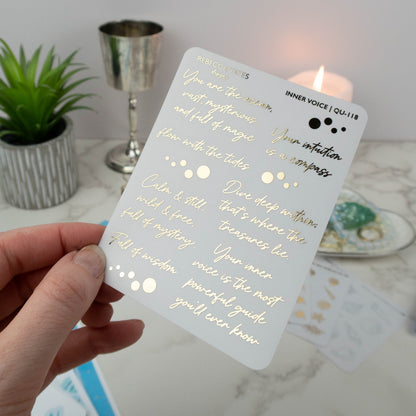 INNER VOICE | QU-118
You are the ocean,
vast, mysterious
and full of magic
flow with the tides
Your intuition
is a compass
Calm & still
wild & free
full of mystery
Full of wisdom
Dive deep within,
that's where the
treasures lie
Your inner
voice is the most
powerful guide
you'll ever know